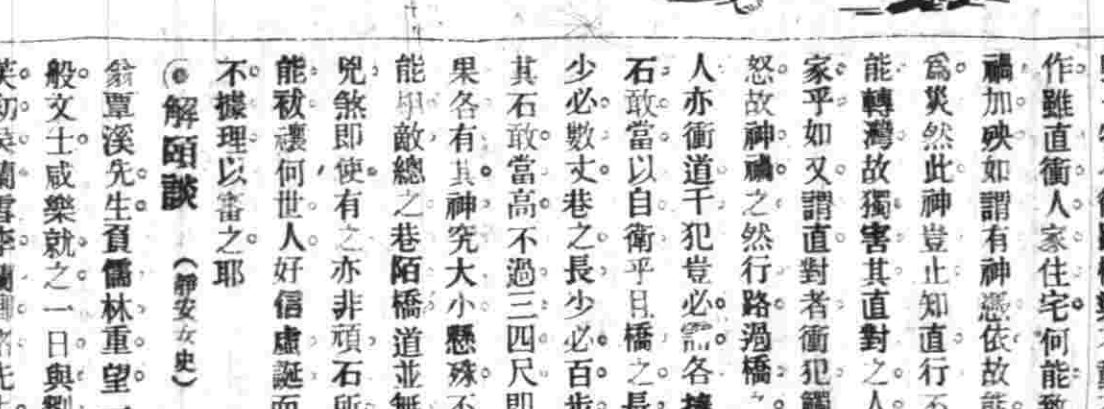 作雖直衝人家住宅何能致
禍加殃如謂有神憑依故能
爲災然此神豈止知直行不
能轉灣故獨害其直對之人
家乎如又謂直對者衝犯觸
怒故神禍之然行路過橋之
人亦衝道干犯豈必需各
石敢當以自衛乎且橋之長
少必數丈巷之長少必百步
其石敢當高不過三四尺即
果各有其神究大小懸殊不
能相敵總之巷陌橋道並無
兇煞即使有之亦非頑石所
能祓禳何世人好信虛誕而
不據理以審之耶
◉解頤談(靜安女史)
翁覃溪先生負儒林重望一
般文士咸樂就之一日與劉